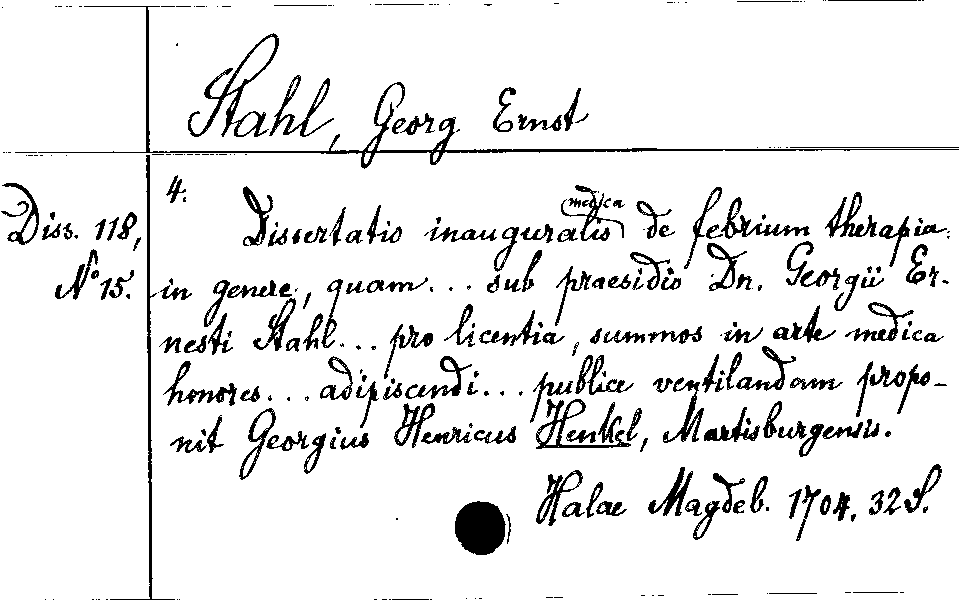 Stahl, Georg Ernst
Diss. 118,
No 15.
4.
Dissertatio inauguralis medica de febrium therapia
in genere, quam... sub praesidio Dn. Georgii Er-
nesti Stahl... pro licentia, summos in arte medica
honores... adipiscendi... publice ventilandam propo-
nit Georgius Henricus Henkel, Martisburgensis.
Halae Magdeb. 1704. 32 S.